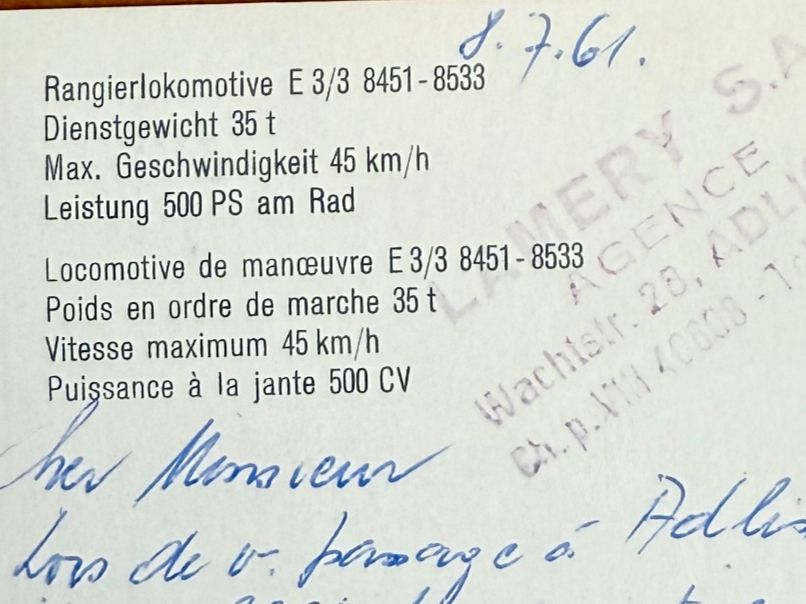 8.7.61.
Rangierlokomotive E 3/3 8451-8533
Dienstgewicht 35 t
Max. Geschwindigkeit 45 km/h
Leistung 500 PS am Rad
Locomotive de manœuvre E 3/3 8451-8533
Poids en ordre de marche 35 t
Vitesse maximum 45 km/h
Puissance à la jante 500 CV
LAMERY S.A
AGENCE
Wachtstr. 28, ADLI
Ch. p. VIII 40608 - 
Cher Monsieur
Lors de v. passage à Adlis